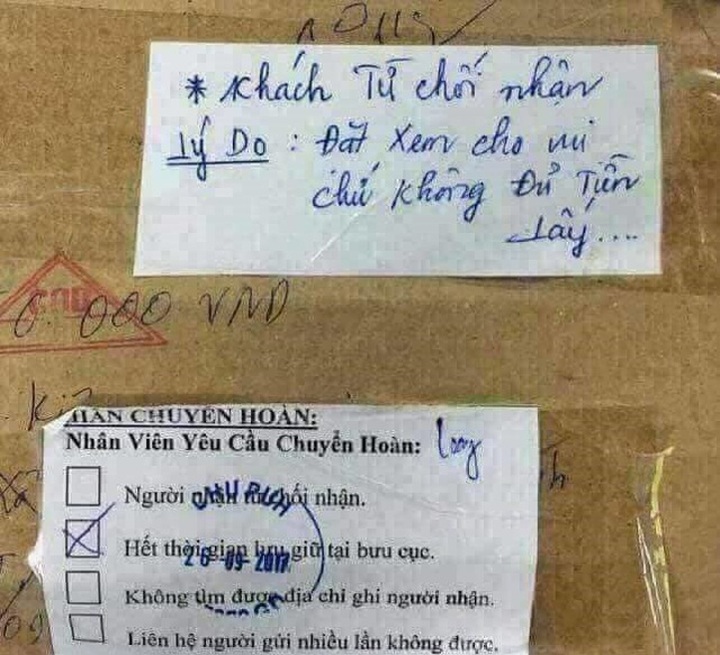 * Khách Từ chối nhận
Lý Do : Đặt xem cho vui
chứ không Đủ Tiền
Lấy....
000 VNĐ
HÀN CHUYỂN HOÀN:
Nhân Viên Yêu Cầu Chuyển Hoàn:
Người nhận từ chối nhận.
Hết thời gian lưu giữ tại bưu cục.
26-09-2017
Không tìm được địa chỉ ghi người nhận.
Liên hệ người gửi nhiều lần không được.